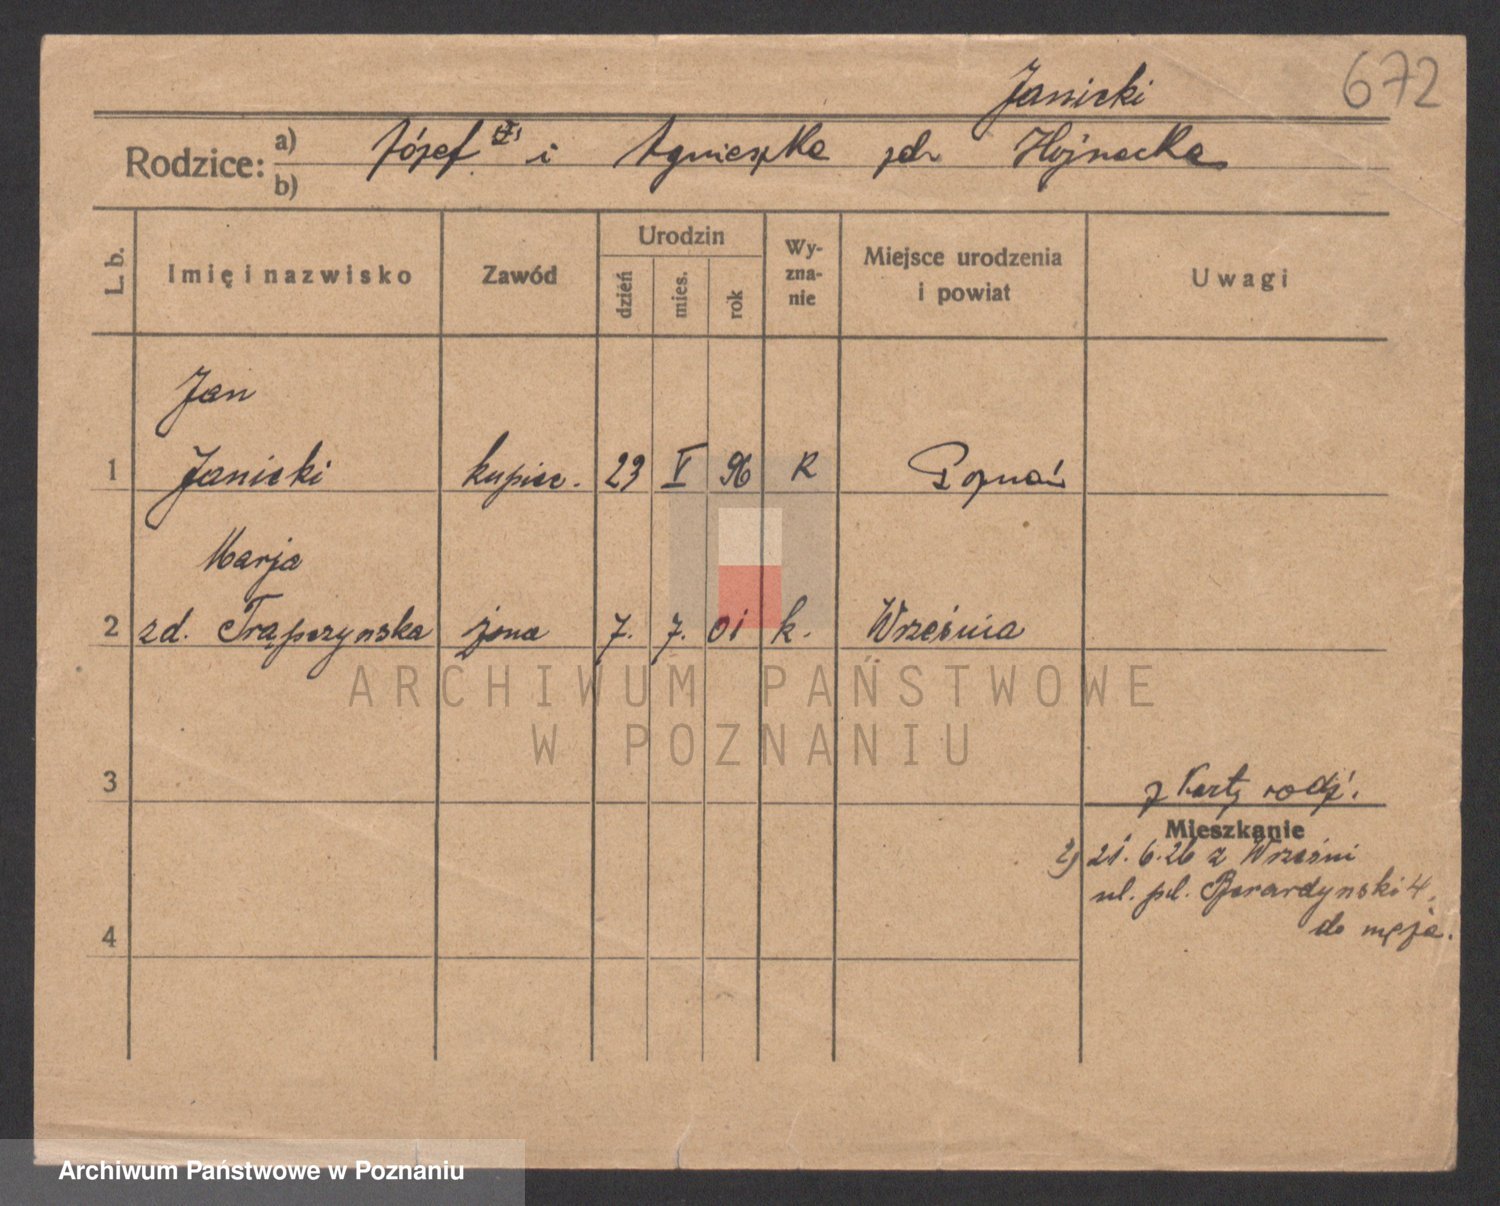 672
Janicki
Rodzice: a) Józef i Agnieszka zdr Hojnacka
b)
L. b. Imię i nazwisko Zawód Urodzin dzień mies. rok Wyznanie Miejsce urodzenia i powiat Uwagi
Jan
1 Janicki kupiec. 23 V 96 R Poznań
Marja
2 zd. Trąpczynska żona 7. 7. 01 k. Września
ARCHIWUM PAŃSTWOWE
W POZNANIU
3 z Karty rodz.
Mieszkanie
2) 21. 6. 26 z Wrześni
ul. pl. Berardynski 4.
do męża.
4
Archiwum Państwowe w Poznaniu